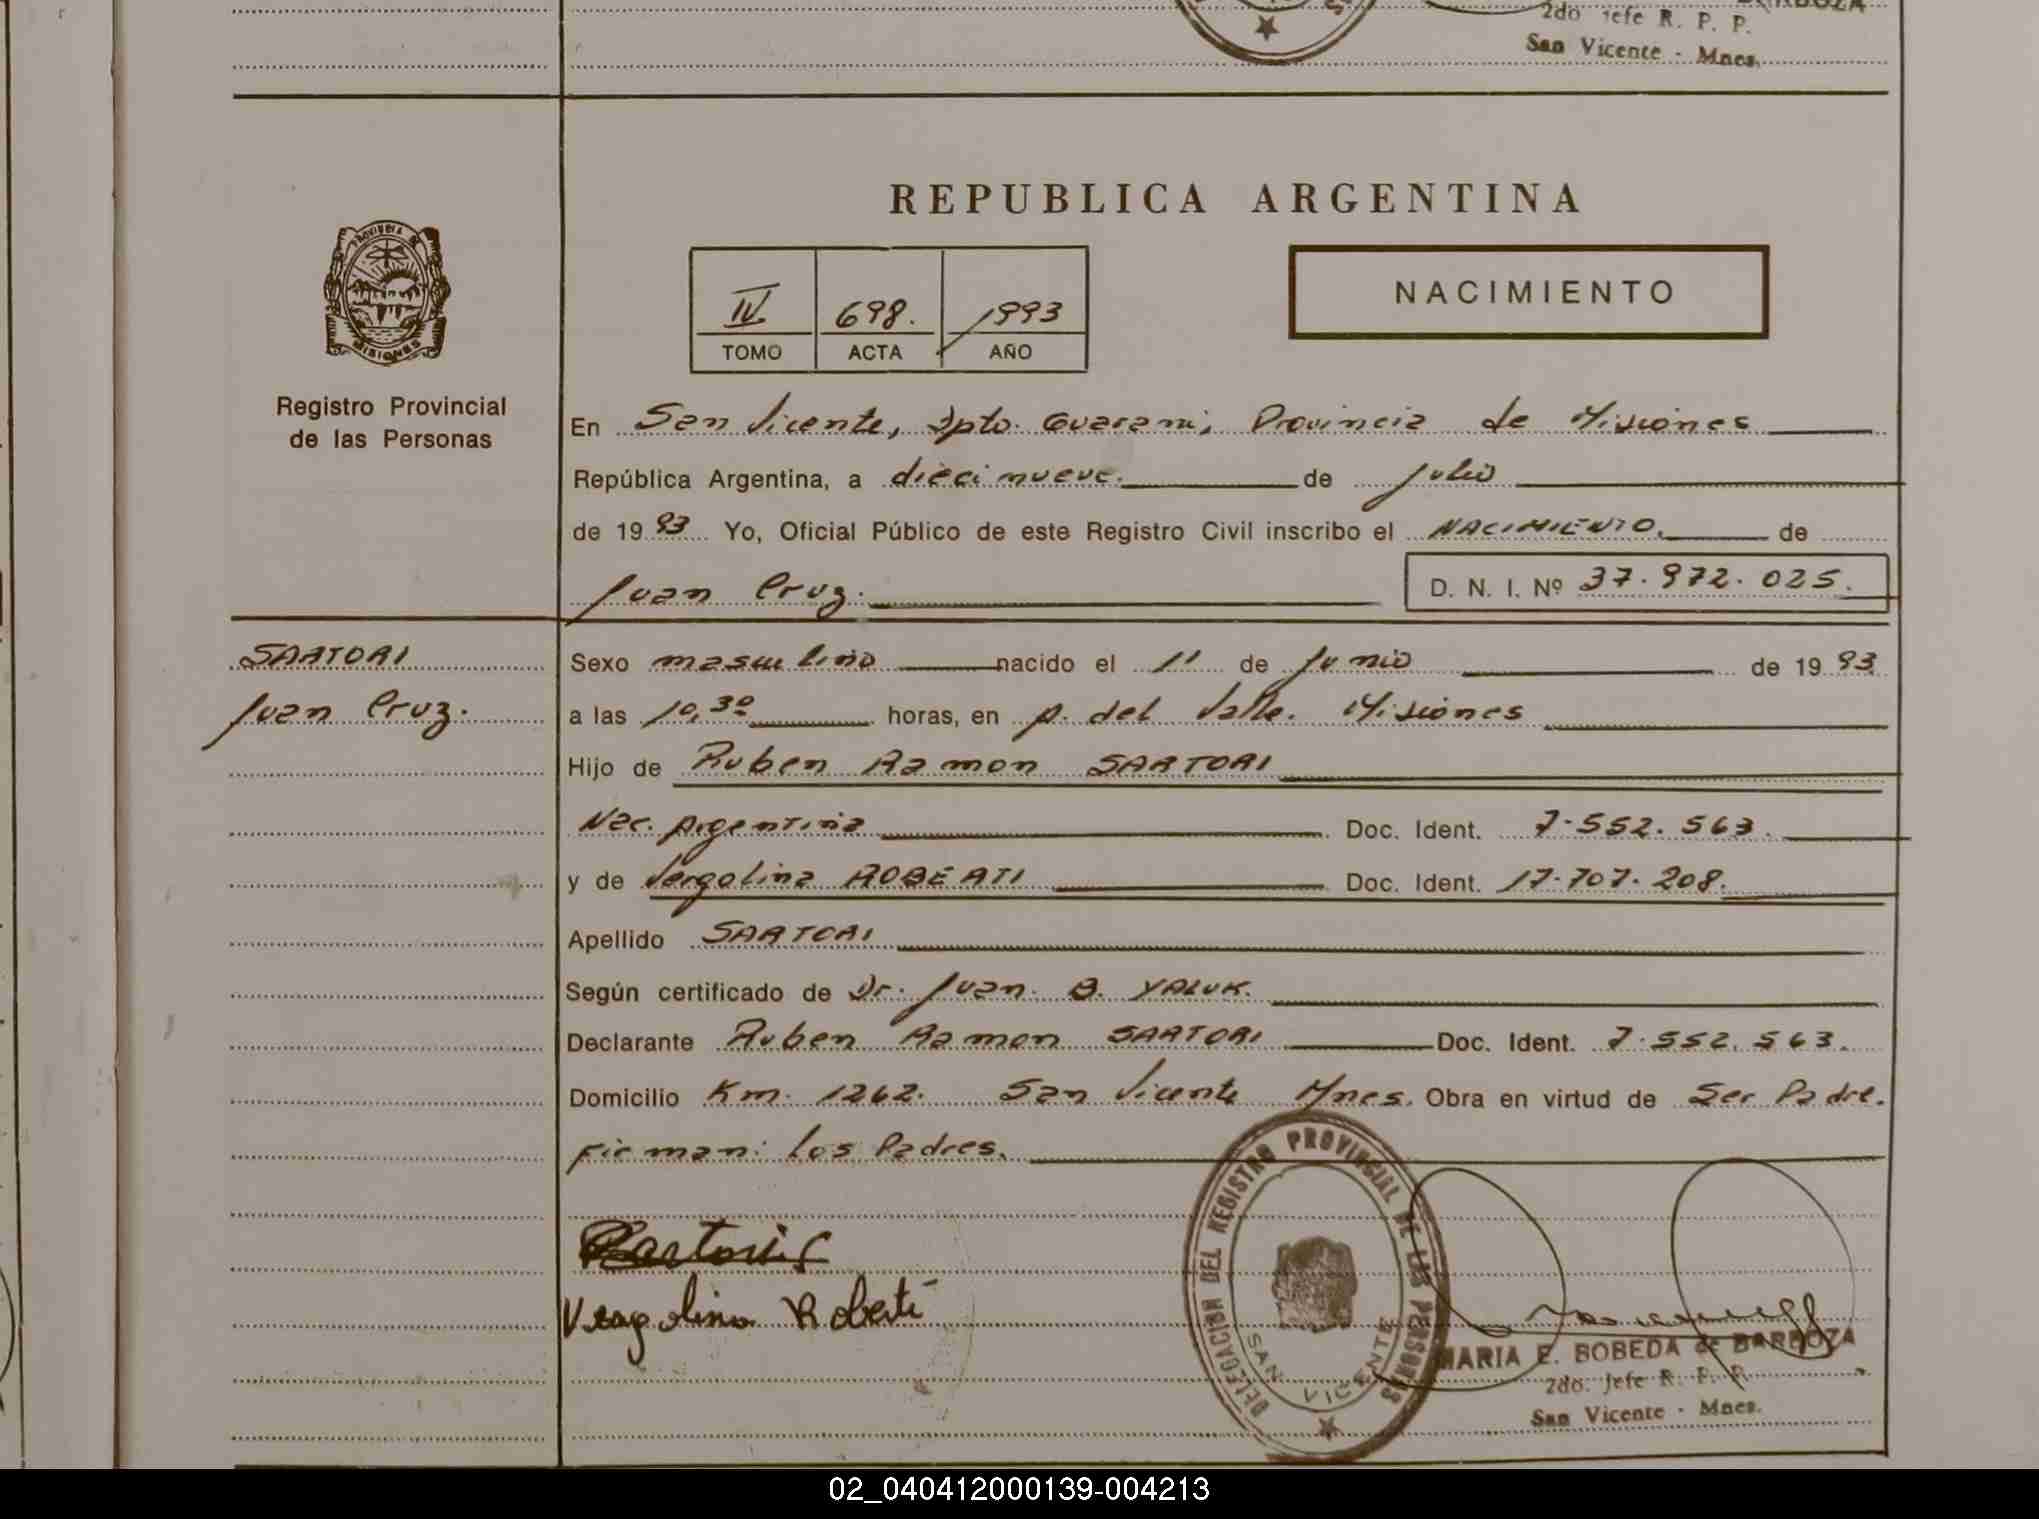 2do jefe R. P. P.
San Vicente - Mnes.
REPUBLICA ARGENTINA
PROVINCIA DE
MISIONES
Registro Provincial
de las Personas
IV 698. 1993
TOMO ACTA AÑO
NACIMIENTO
En San Vicente, Dpto. Guarani; Provincia de Misiones
República Argentina, a diecinueve. de julio
de 19 93 Yo, Oficial Público de este Registro Civil inscribo el NACIMIENTO. de
Juan Cruz. D. N. I. Nº 37.972.025.
SARTORI
Juan Cruz.
Sexo masculino nacido el 11 de junio de 19 93
a las 10,30 horas, en p. del Valle. Misiones
Hijo de Ruben Ramon SARTORI
Nac. Argentina Doc. Ident. 7.552.563.
y de Vergolina ROBERTI Doc. Ident. 17.707.208.
Apellido SARTORI
Según certificado de Dr. Juan B. YALUK.
Declarante Ruben Ramon SARTORI Doc. Ident. 7.552.563.
Domicilio Km. 1262. San Vicente Mnes. Obra en virtud de Ser Padre.
Firman: Los Padres.
Vergolina Roberti
DELEGACION DEL REGISTRO PROVINCIAL DE LAS PERSONAS
SAN VICENTE
MARIA E. BOBEDA de BARBOZA
2do. Jefe R. P. P.
San Vicente - Mnes.
02_040412000139-004213